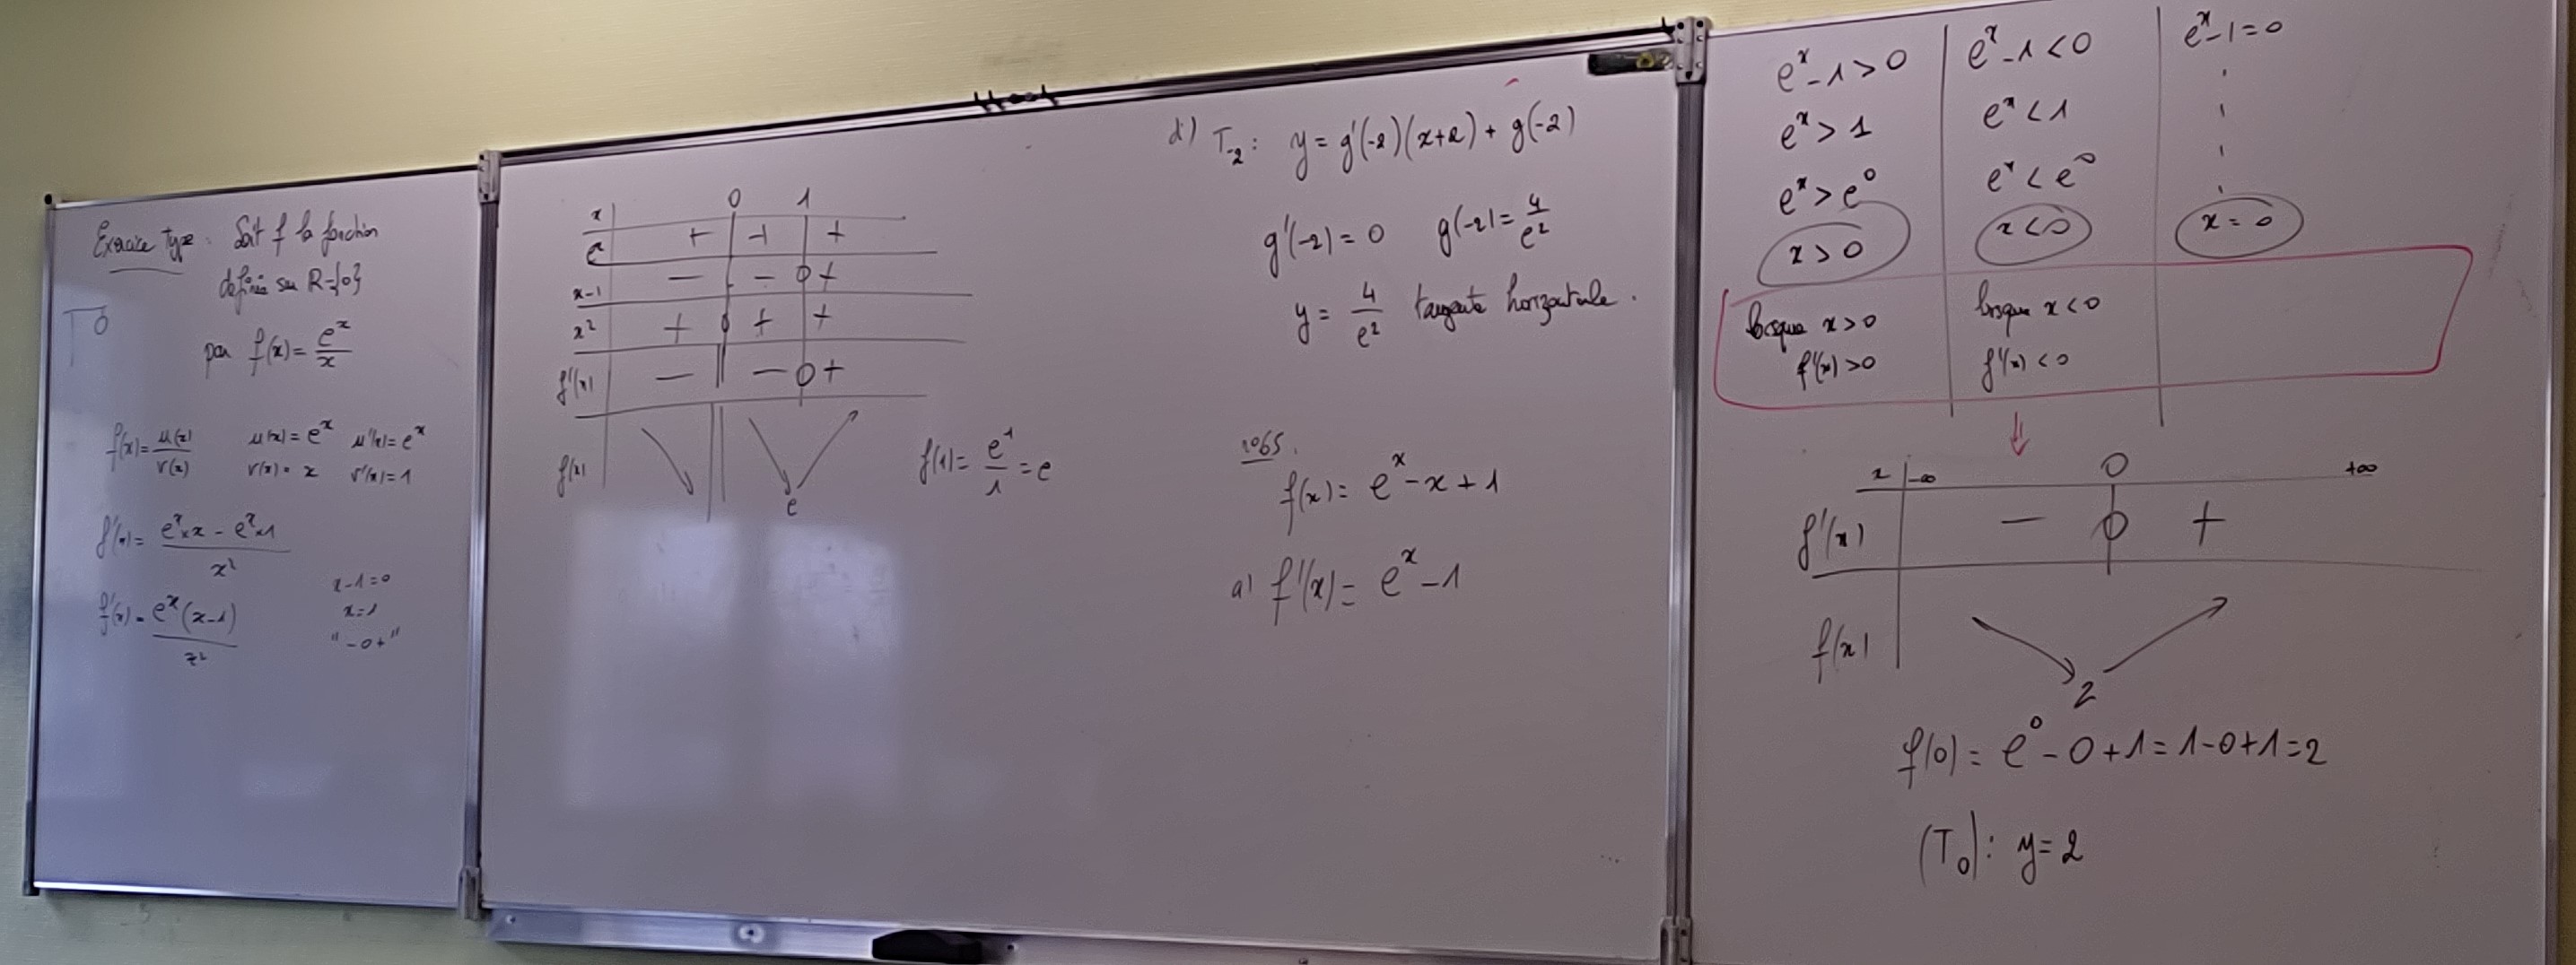 Exercice Type : Soit f la fonction
définie sur R-{0}
T0
par f(x) = e^x/x
f(x) = u(x)/v(x) u(x) = e^x u'(x) = e^x
v(x) = x v'(x) = 1
f'(x) = (e^x × x - e^x × 1)/x²
f'(x) = e^x(x-1)/x²
x-1=0
x=1
"-0+"
x 0 1
e^x + + +
x-1 - - 0 +
x² + 0 + +
f'(x) - || - 0 +
f(x) ↘ || ↘ e ↗
f(1) = e^1/1 = e
d) T_-2 : y = g'(-2)(x+2) + g(-2)
g'(-2) = 0 g(-2) = 4/e²
y = 4/e² tangente horizontale.
n°65.
f(x) = e^x - x + 1
a) f'(x) = e^x - 1
e^x - 1 > 0 | e^x - 1 < 0 | e^x - 1 = 0
e^x > 1 | e^x < 1
e^x > e^0 | e^x < e^0
x > 0 | x < 0 | x = 0
lorsque x > 0 | lorsque x < 0
f'(x) > 0 | f'(x) < 0
x -∞ 0 +∞
f'(x) - 0 +
f(x) ↘ 2 ↗
f(0) = e^0 - 0 + 1 = 1-0+1 = 2
(T_0) : y = 2